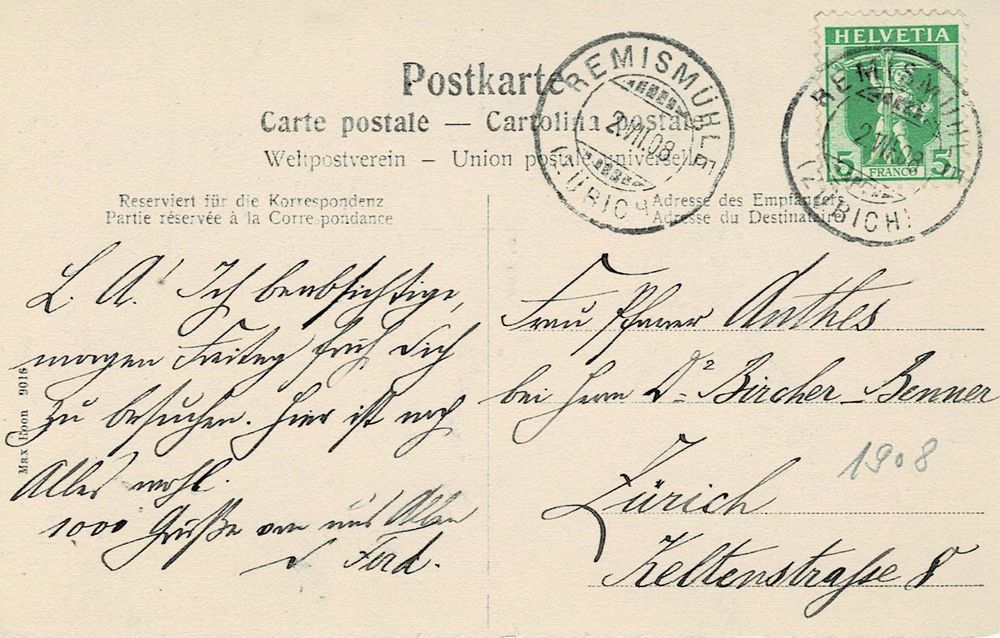 Postkarte
Carte postale — Cartolina postale
Weltpostverein — Union postale universelle
REMISMÜHLE
2.VII.08
(ZÜRICH)
HELVETIA
5 5
FRANCO
REMISMÜHLE
2.VII.08
(ZÜRICH)
Reserviert für die Korrespondenz
Partie réservée à la Correspondance
Adresse des Empfängers
Adresse du Destinataire
L. A! Ich beabsichtige,
morgen Freitag früh Dich
zu besuchen. Hier ist noch
Alles wohl.
1000 Grüße von uns Allen
Ferd.
Frau Pfarrer Anthes
bei Herrn Dr Bircher-Benner
Zürich
Keltenstraße 8
1908
Max Roon 9016